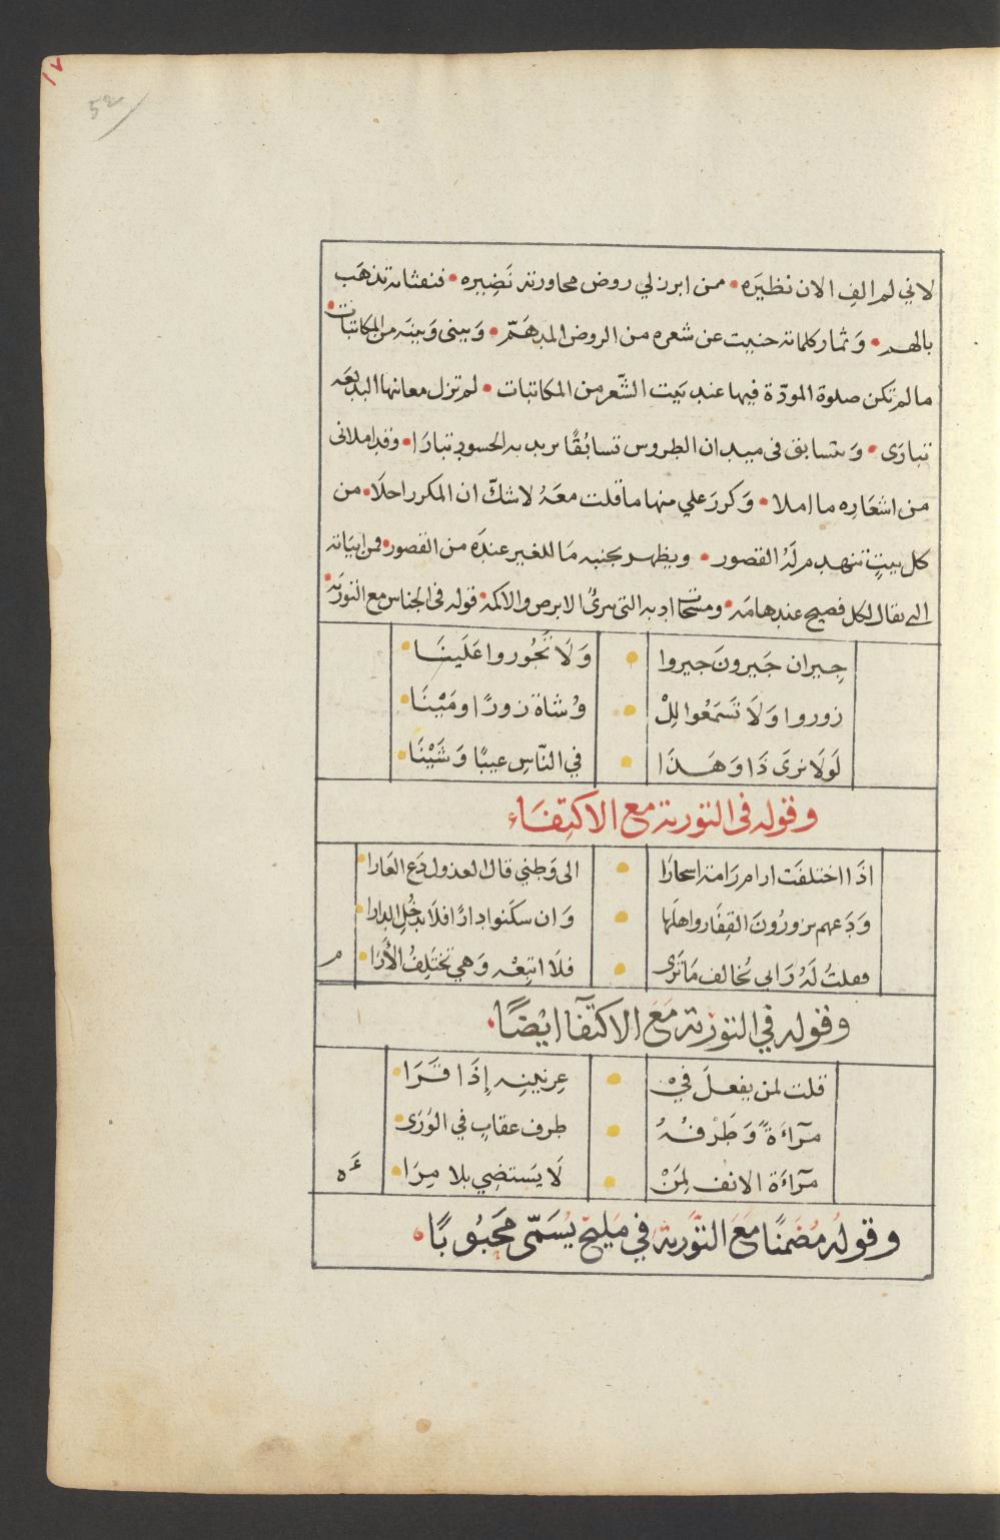 ١٧
52
لاني لم الف الان نظيَره • ممن ابرز لي روض محاورته نَضِيره • فنفثاته تذهَب
بالهم • وَثمار كلماته جنيت عن شعره من الروض المدهَمّ • وَبيني وَبينه من المكاتبات •
ما لم تكن صلوة المودّة فيها عند بَيت الشّعر من المكاتبات • لم تزل معانيها البديعَه
تتبارَى • وَتتسابق في ميدان الطروس تسابُقًا يريد به الحسود تبارًا • وقد املاني
من اشعَاره ما املا • وَكررَ علي منها ما قلت معَهُ لا شكّ ان المكرر احلَا • من
كل بيتٍ تنهدم لَهُ القصور • ويظهر بجنبه مَا للغير عندَه من القصور • فمن ابياته
التي يقال لكل فصيح عندها مَه • ومسحات ادبه التي تبرئُ الابرص والاكمه • قوله في الجناس مع التوريَه •
جِيران جَيرونَ جيروا • وَلَا تَجُوروا عَلَينَا •
زوروا وَلَا تَسمَعُوا لِلْ • وُشاة زورًا ومَيْنَا •
لَولَا نرَى ذَا وَهَذَا • في النّاسِ عيبًا وَشَيْنَا •
وقوله في التورية مع الاكتِفَاء
اذَا اختلفَت ارام رَامة اسحارًا • الى وَطني قال العذول دَع العَارا •
وَدَعهم يزورُونَ القِفَار واهلَها • وَان سكَنوا دارًا فلا تدخُلِ الدارا •
فقلتُ لَهُ رَايي يُخالف مَا تَرى • فلَا اتبعْه وَهي تختَلِفُ الأرَا •
م
وقوله في التورية مَعَ الاكتفَآ ايْضًا •
قلت لمن يفعلَ فيْ • عِرنينِهِ إذَا قَرَا •
مرآءَةً وَطَرْفُهُ • طرف عقاب في الوَرَى •
مرآءَة الانف لِمَنْ • لَا يَستضِي بلا مِرَا •
وقولُه مُضَمنًا مَعَ التَّوَرية في مَليح يُسَمّى مَحبُوبًا •